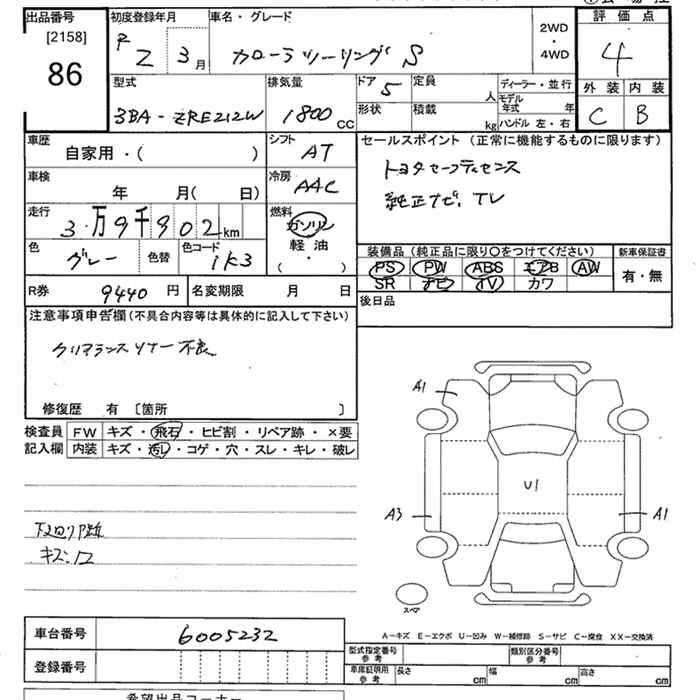 出品番号 [2158] 86
初度登録年月 R 2 3月
車名・グレード カローラツーリング S
2WD・4WD
評価点 4
外装 内装
C B
型式 3BA-ZRE212W
排気量 1800 CC
ドア 5
定員 人
形状 積載 kg
ディーラー・並行
モデル年式 年
ハンドル 左・右
車歴 自家用・( )
シフト AT
セールスポイント (正常に機能するものに限ります)
トヨタセーフティセンス
純正ナビ、TV
車検 年 月( 日)
冷房 AAC
走行 3万9千902km
燃料 ガソリン 軽油・( )
色 グレー 色替 色コード 1K3
装備品 (純正品に限り〇をつけてください)
PS PW ABS エアB AW
SR ナビ TV カワ
新車保証書 有・無
R券 9440円 名変期限 月 日
後日品
注意事項申告欄(不具合内容等は具体的に記入して下さい)
クリアランスソナー不良
修復歴 有 〔箇所 〕
検査員記入欄
FW キズ・飛石・ヒビ割・リペア跡・×要
内装 キズ・汚レ・コゲ・穴・スレ・キレ・破レ
A1
U1
A3
A1
キズ
スペア
車台番号 6005232
登録番号
A-キズ E-エクボ U-凹み W-補修跡 S-サビ C-腐食 XX-交換済
型式指定番号 参考
類別区分番号 参考
車庫証明用 参考 長さ cm 幅 cm 高さ cm
希望出品コーナー